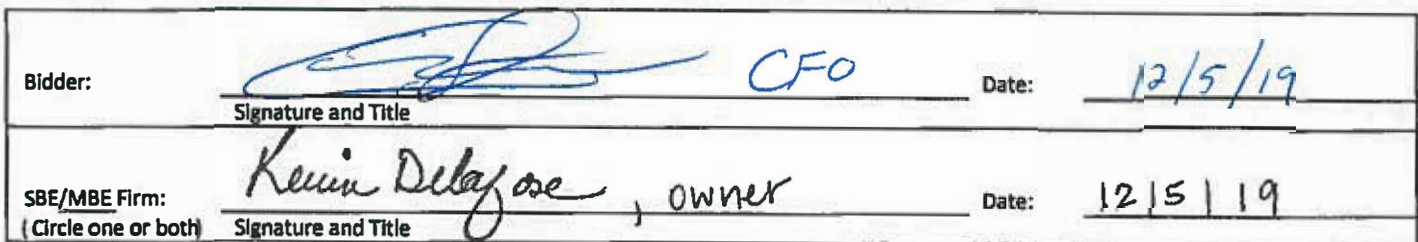 Bidder: CFO Date: 12/5/19
Signature and Title
SBE/MBE Firm: Kevin Delafose, owner Date: 12/5/19
(Circle one or both) Signature and Title